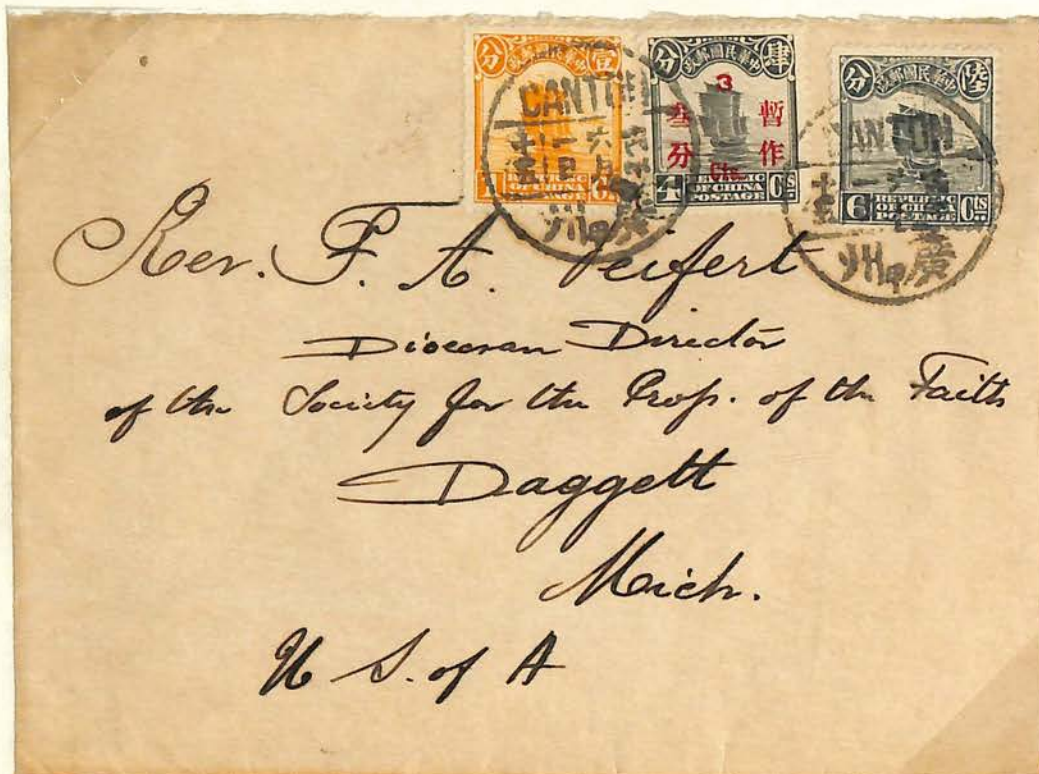 分 中華民國郵政 壹
1 REPUBLIC OF CHINA
分 中華民國郵政 肆
3
暫作
叁分
Cts.
4 REPUBLIC OF CHINA POSTAGE Cts
分 中華民國郵政 陸
6 REPUBLIC OF CHINA POSTAGE Cts
CANTON
廣州
CANTON
廣州
Rev. F. A. Seifert
Diocesan Director
of the Society for the Prop. of the Faith
Daggett
Mich.
U S. of A